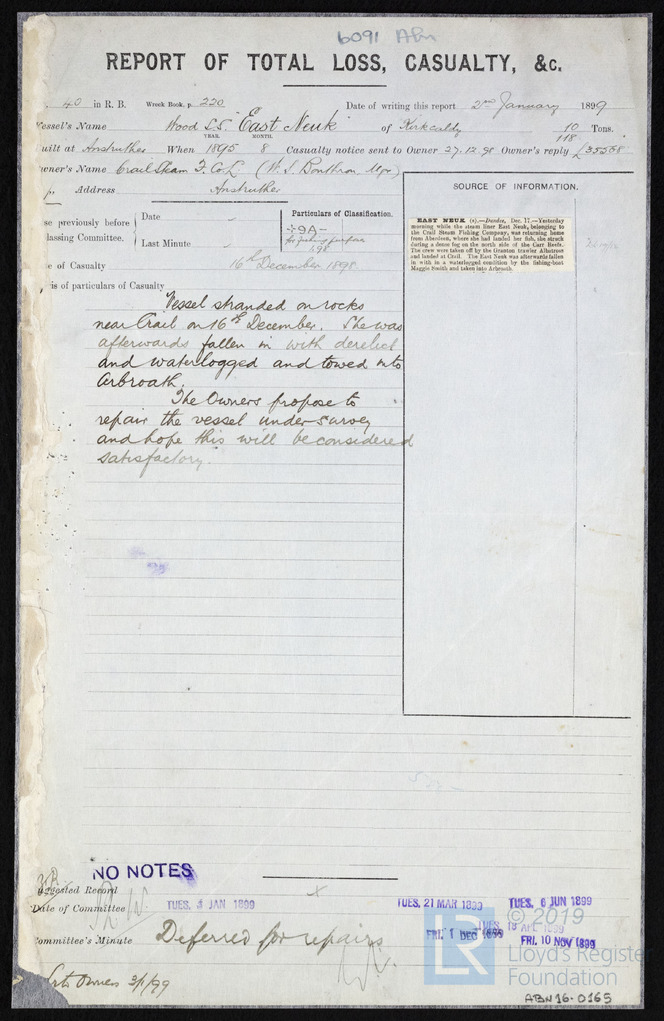 6091 Abn
REPORT OF TOTAL LOSS, CASUALTY, &c.
40 in R. B. Wreck Book, p. 220 Date of writing this report 2nd January 1899
Vessel's Name Wood S.S. East Neuk of Kirkcaldy 10/118 Tons.
YEAR. MONTH.
uilt at Anstruther When 1895 8 Casualty notice sent to Owner 27.12.98 Owner's reply £35568
wner's Name Crail Steam F. Co. L. (W. S. Bonthron, Mgr.)
Address Anstruther
SOURCE OF INFORMATION.
se previously before
lassing Committee.
Date -
Last Minute -
Particulars of Classification.
+9A-
for fishing purposes
1,98
EAST NEUK (s).—Dundee, Dec. 17.—Yesterday
morning while the steam liner East Neuk, belonging to
the Crail Steam Fishing Company, was returning home
from Aberdeen, where she had landed her fish, she struck
during a dense fog on the north side of the Carr Reefs.
The crew were taken off by the Granton trawler Albatross
and landed at Crail. The East Neuk was afterwards fallen
in with in a waterlogged condition by the fishing-boat
Maggie Smith and taken into Arbroath.
te of Casualty 16th December 1898
is of particulars of Casualty
Vessel stranded on rocks
near Crail on 16th December. She was
afterwards fallen in with derelict
and waterlogged and towed into
Arbroath.
The Owners propose to
repair the vessel under survey
and hope this will be considered
satisfactory.
NO NOTES
uggested Record
Date of Committee TUES. 3 JAN 1899 TUES. 21 MAR 1899 TUES. 6 JUN 1899
TUES. 18 APL 1899
FRI. 1 DEC 1899 FRI. 10 NOV 1899
Committee's Minute Deferred for repairs
Owners 3/1/99
© 2019
LR
Lloyd's Register
Foundation
ABN16-0165